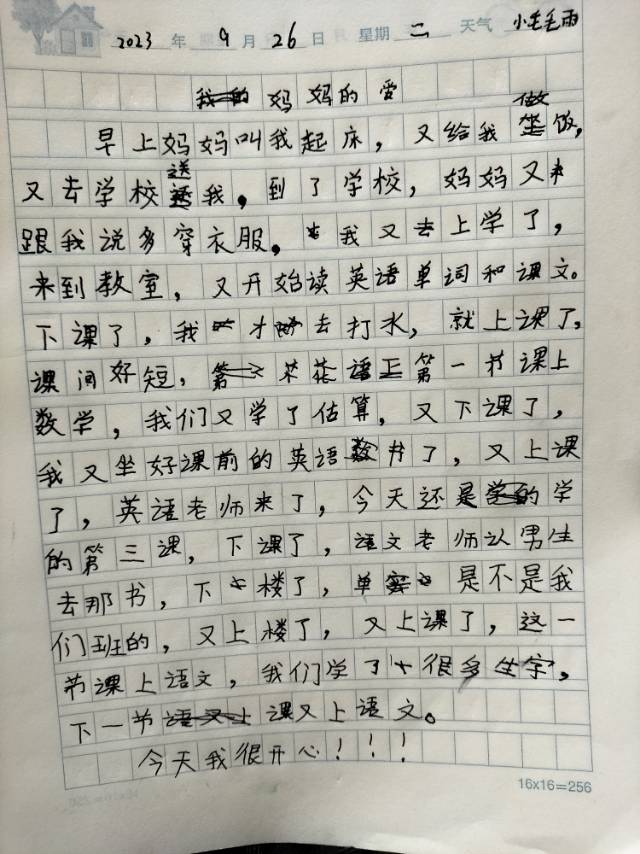 2023 年 9 月 26 日 星期 二 天气 小毛毛雨
妈妈的爱
早上妈妈叫我起床，又给我做饭，
又去学校送我，到了学校，妈妈又
跟我说多穿衣服。我又去上学了，
来到教室，又开始读英语单词和课文。
下课了，我才去打水，就上课了，
课间好短，第一节课上
数学，我们又学了估算，又下课了，
我又坐好课前的英语书了，又上课
了，英语老师来了，今天还是学
的第三课，下课了，语文老师让男生
去那书，下楼了，单是不是我
们班的，又上楼了，又上课了，这一
节课上语文，我们学了很多生字，
下一节课又上语文。
今天我很开心！！！
16x16=256